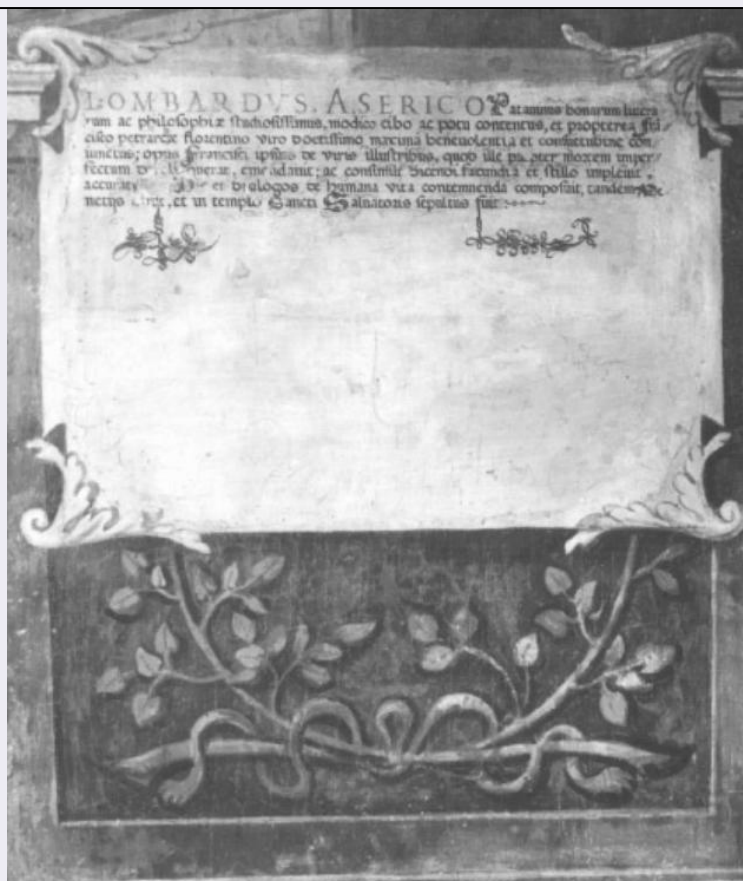 LOMBARDVS. A SERICO Patauinus bonarum littera
rum ac philosophiæ studiosissimus, modico cibo ac potu contentus, et propterea frā
cisco petrarcæ florentino viro doctissimo, maxima beneuolentia et consuetudine con
iunctus; opus Francisci ipsius de viris illustribus, quod ille mortem imper
fectum emendauit; ac consimili dicendi facundia et stillo impleuit.
et dialogos de humana vita contemnenda composuit, tandem
netijs et in templo Sancti Saluatoris sepultus fuit